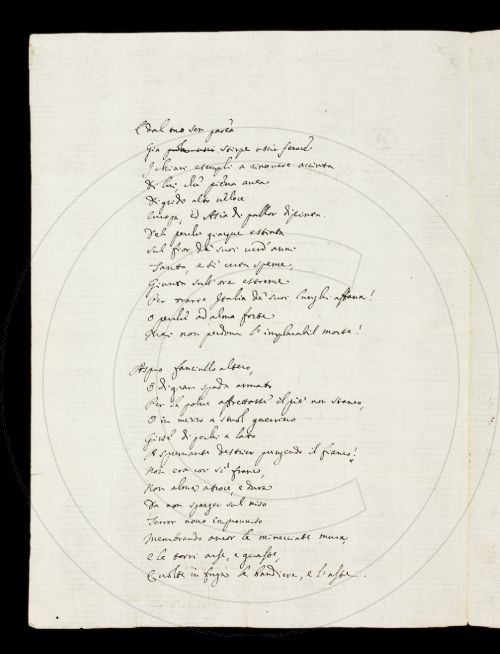 E dal tuo sen parea
Già stirpe uscir feroce
I chiari esempli a rinovare accinta
Di lui, che piena avea
Di grido alto veloce
Europa, ed Asia di pallor dipinta.
Deh perchè giacque estinta
Sul fior de' suoi verd' anni
Tanta, e sì certa speme,
Giunta sull' ore estreme
Per trarre Italia de' suoi lunghi affanni!
O perchè ad alma forte
Mai non perdona l' implacabil morte!
Aspro fanciullo altero,
O di gran spada armato
Per la polve affrettasse il piè non stanco,
O in mezzo a stuol guerriero
Gisse di pochi a lato
A spumante destrier pungendo il fianco!
Non era cor sì franco,
Non alma atroce, e dura
Da non sparger sul viso
Terror novo improvviso
Membrando ancor le minacciate mura,
E le torri arse, e guaste,
E volte in fuga le bandiere, e l' aste.